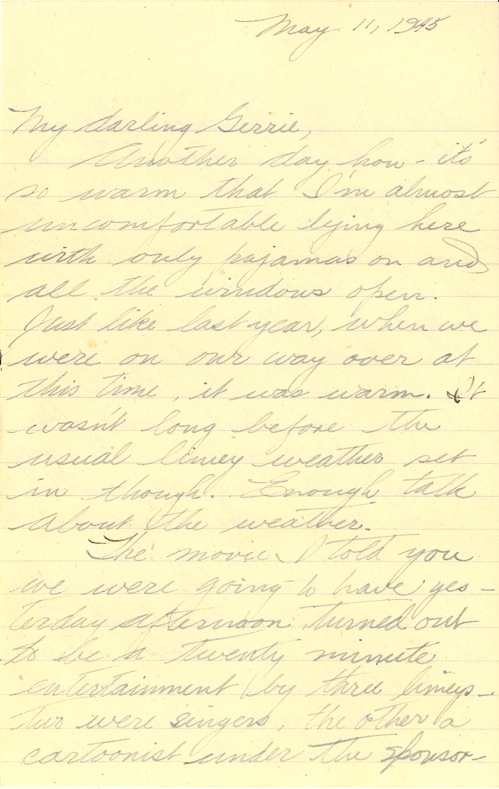 May 11, 1945
My darling Gerrie,
Another day hon - it's
so warm that I'm almost
uncomfortable lying here
with only pajamas on and
all the windows open.
Just like last year, when we
were on our way over at
this time, it was warm. It
wasn't long before the
usual limey weather set
in though. Enough talk
about the weather.
The movie I told you
we were going to have yes-
terday afternoon turned out
to be a twenty minute
entertainment by three limeys-
Two were singers, the other a
cartoonist under the sponsor-